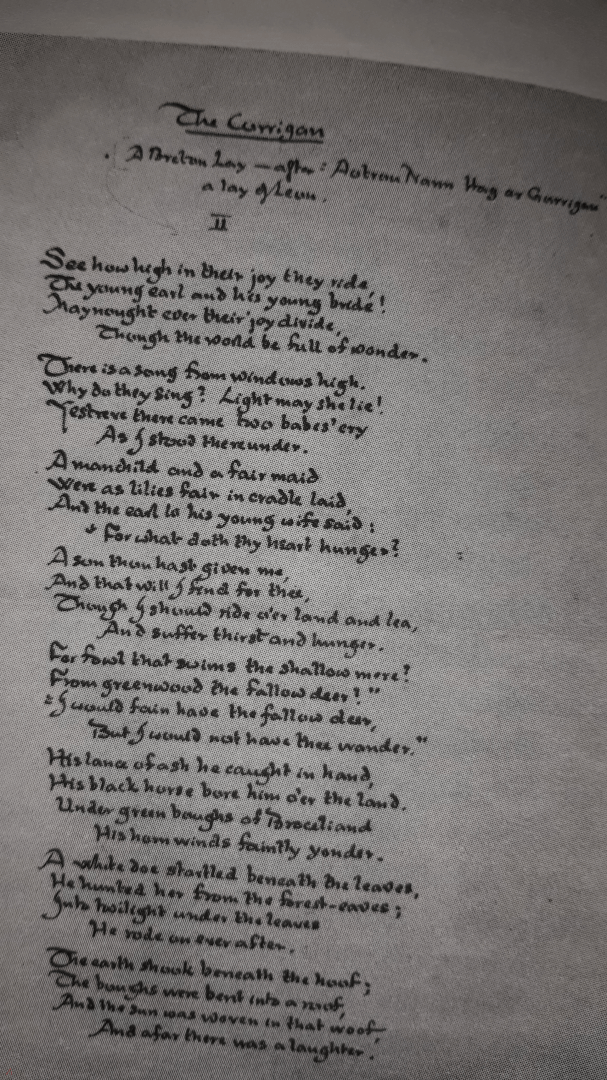 The Corrigan
. A Breton Lay — after: 'Autrou Nann Hag ar Gorrigan"
a lay of Leon.
II
See how high in their joy they ride,
The young earl and his young bride!
May nought ever their joy divide,
Though the world be full of wonder.
There is a song from windows high.
Why do they sing? Light may she lie!
Yestreve there came two babes' cry
As I stood thereunder.
A manchild and a fair maid
Were as lilies fair in cradle laid,
And the earl to his young wife said:
"For what doth thy heart hunger?
A son thou hast given me,
And that will I find for thee,
Though I should ride o'er land and lea,
And suffer thirst and hunger.
For fowl that swims the shallow mere?
From greenwood the fallow deer?"
"I would fain have the fallow deer,
But I would not have thee wander."
His lance of ash he caught in hand,
His black horse bore him o'er the land.
Under green boughs of Broceliand
His horn winds faintly yonder.
A white doe startled beneath the leaves,
He hunted her from the forest-eaves;
Into twilight under the leaves
He rode on ever after.
The earth shook beneath the hoof;
The boughs were bent into a roof,
And the sun was woven in that woof,
And afar there was a laughter.